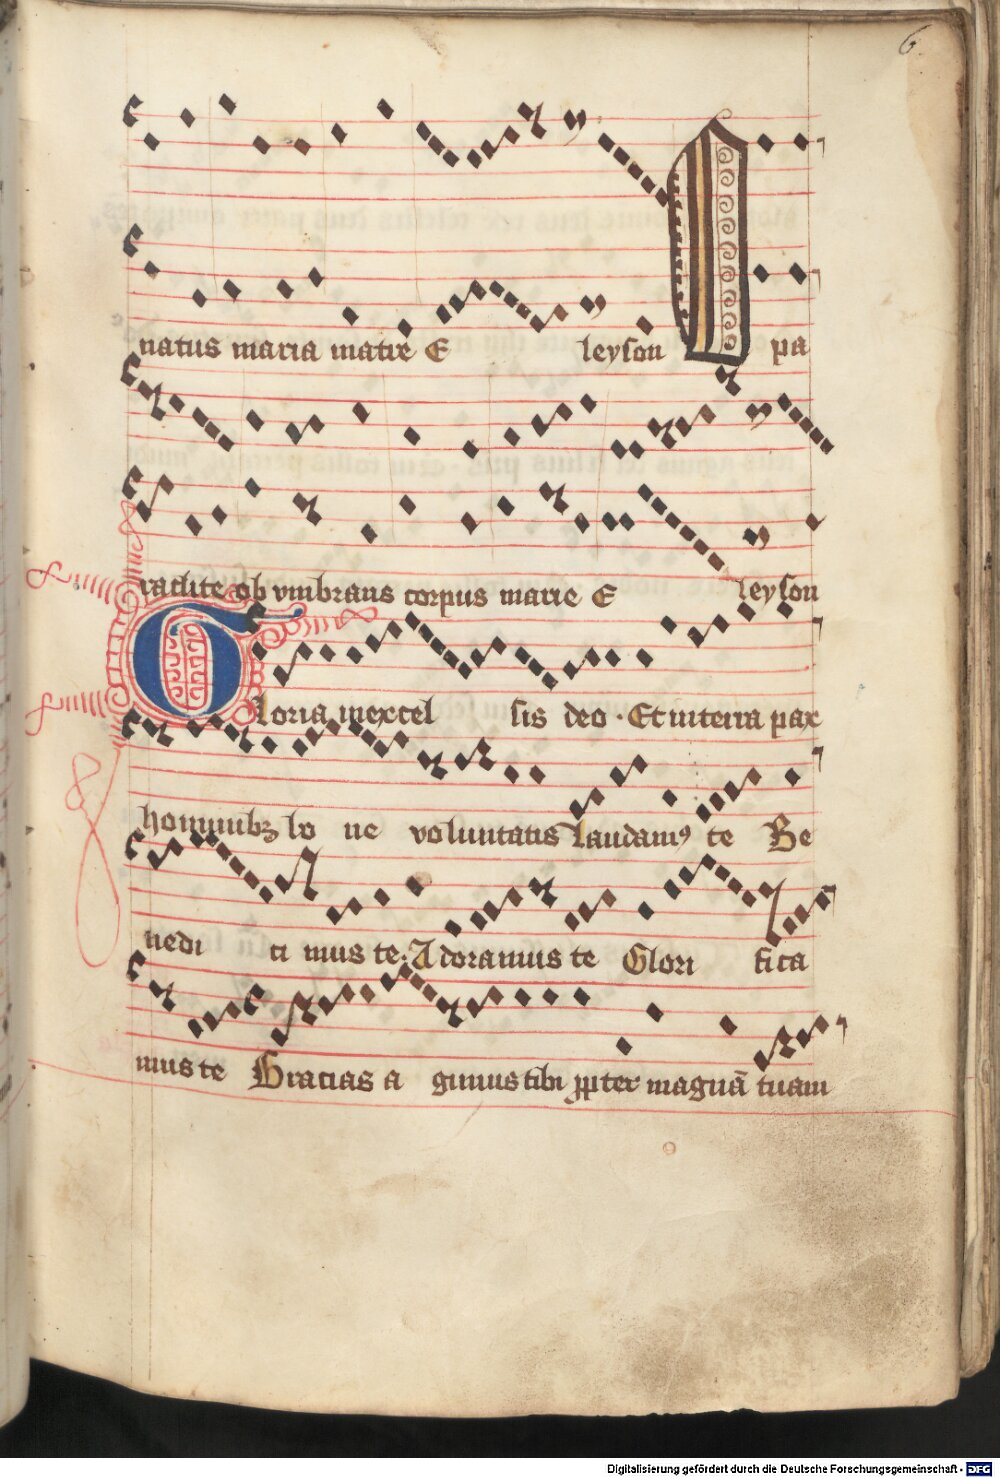 6
natus maria matre E leyson pa
raclite ob vmbrans corpus marie E leyson
Gloria inexcelsis deo · Et in terra pax
hominibz bo ne voluntatis Laudamꝰ te Be
nedi ci mus te. Adoramus te Glori fica
mus te Gracias a gimus tibi ꝓpter magnā tuam
Digitalisierung gefördert durch die Deutsche Forschungsgemeinschaft - DFG